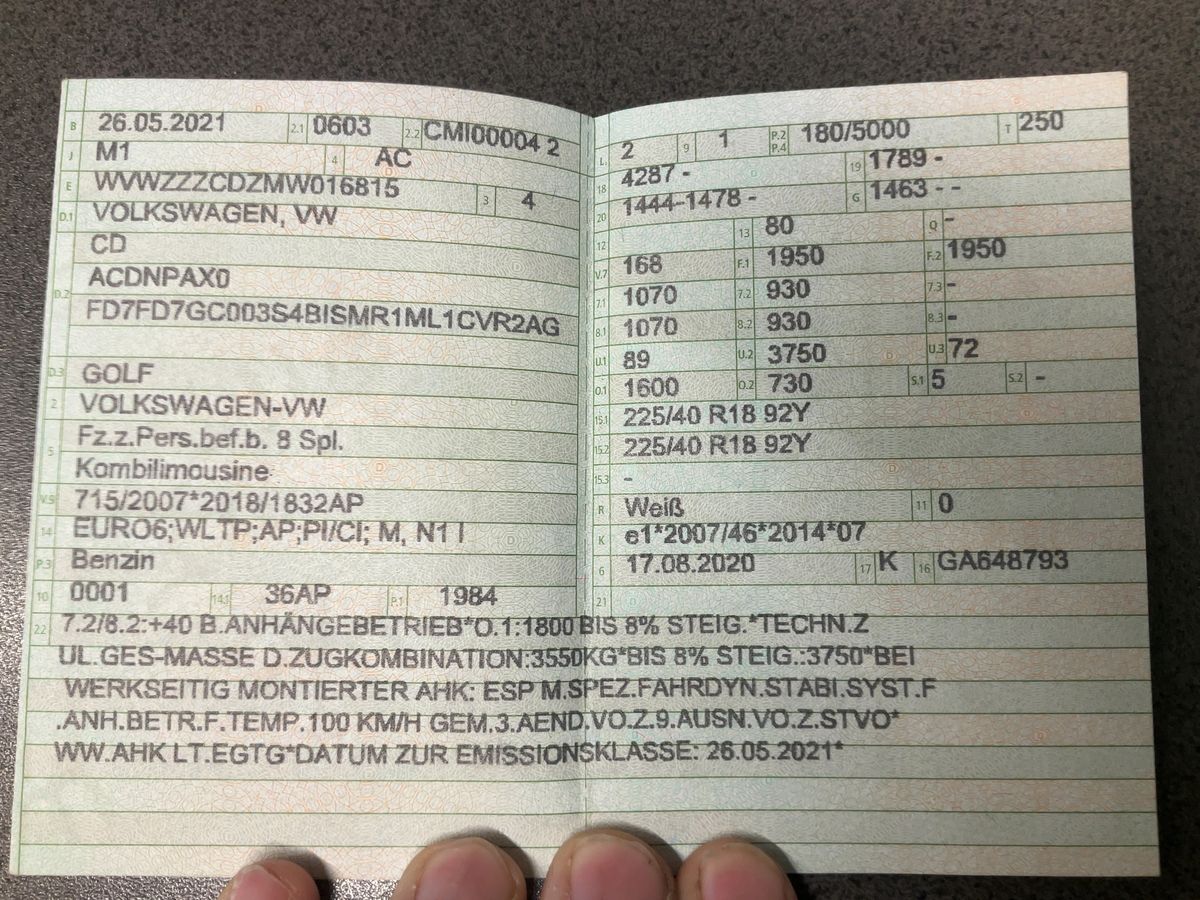 B 26.05.2021 2.1 0603 2.2 CMI00004 2
J M1 4 AC
E WVWZZZCDZMW016815 3 4
D.1 VOLKSWAGEN, VW
CD
D.2 ACDNPAX0
FD7FD7GC003S4BISMR1ML1CVR2AG
D.3 GOLF
2 VOLKSWAGEN-VW
5 Fz.z.Pers.bef.b. 8 Spl.
Kombilimousine
V.9 715/2007*2018/1832AP
14 EURO6;WLTP;AP;PI/CI; M, N1 I
P.3 Benzin
10 0001 14.1 36AP P.1 1984
L 2 9 1 P.2 P.4 180/5000 T 250
18 4287 - 19 1789 -
20 1444-1478 - G 1463 - -
12 13 80 Q -
V.7 168 F.1 1950 F.2 1950
7.1 1070 7.2 930 7.3 -
8.1 1070 8.2 930 8.3 -
U.1 89 U.2 3750 U.3 72
O.1 1600 O.2 730 S.1 5 S.2 -
15.1 225/40 R18 92Y
15.2 225/40 R18 92Y
15.3 -
R Weiß 11 0
K e1*2007/46*2014*07
6 17.08.2020 17 K 16 GA648793
21
22 7.2/8.2:+40 B.ANHÄNGEBETRIEB*O.1:1800 BIS 8% STEIG.*TECHN.Z
UL.GES-MASSE D.ZUGKOMBINATION:3550KG*BIS 8% STEIG.:3750*BEI
WERKSEITIG MONTIERTER AHK: ESP M.SPEZ.FAHRDYN.STABI.SYST.F
.ANH.BETR.F.TEMP.100 KM/H GEM.3.AEND.VO.Z.9.AUSN.VO.Z.STVO*
WW.AHK LT.EGTG*DATUM ZUR EMISSIONSKLASSE: 26.05.2021*